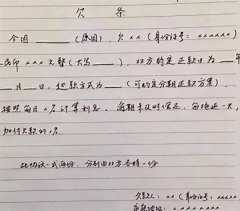 欠条
今因______(原因),欠××(身份证号:××××××)
民币×××元整(大写______),双方特定还款日为____年
__月__日,还款方式为______(可约定分期还款方案),
按照每月×%计算利息,每期未及时偿还,每拖延一天,
加付欠款的×%。
此协议一式两份,分别由双方各持一份
欠款人:××(身份证号:×××××